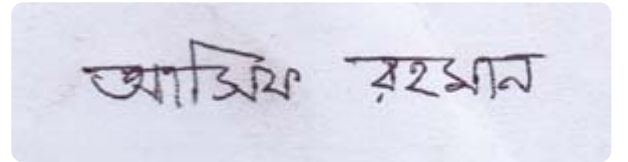 আসিফ রহমান